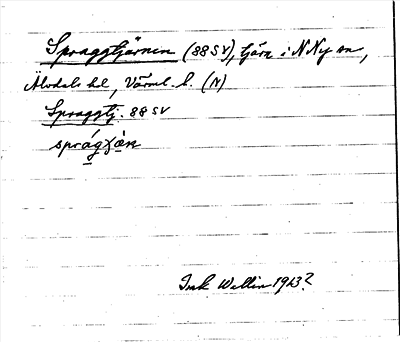 Spraggtjärnen (88 SV), tjärn i N Ny sn,
Älvdals hd, Värml. l. (N)
Spraggtj. 88 SV
Ink Wellin 1913?